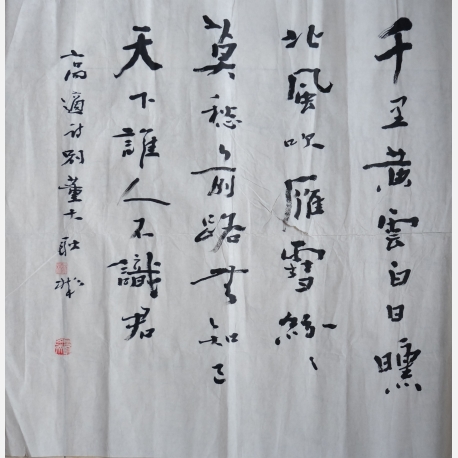 千里黄雲白日曛
北風吹雁雪紛〻
莫愁前路無知己
天下誰人不識君
高適詩別董大耿